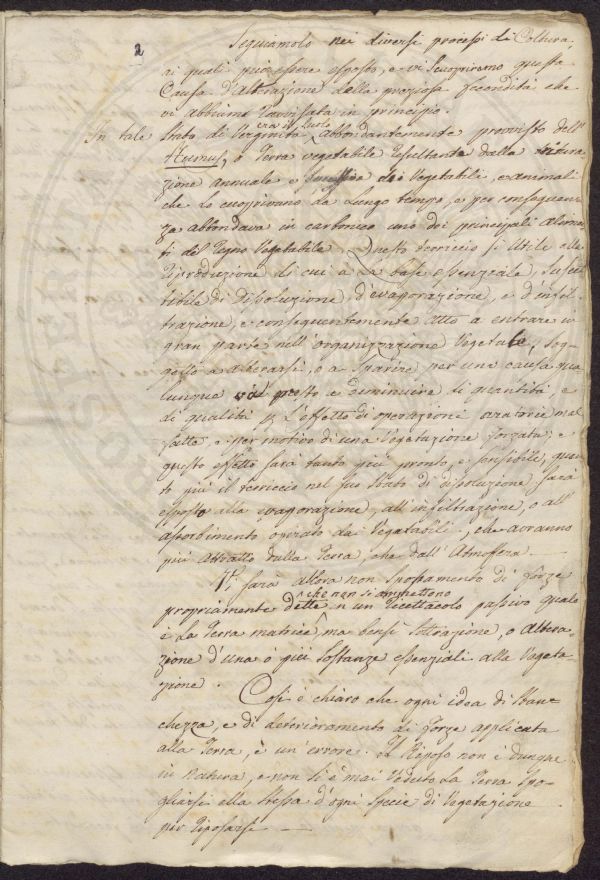 2
Seguiamolo nei diversi processi di Coltura,
ai quali può essere esposto, e vi scuopriremo questa
Causa d'alterazione della preziosa fecondità che
vi abbiamo ravvisata in principio.
In tale stato di Verginità era il suolo abbondantemente provvisto dell'
Humus, o Terra vegetabile resultante dalla
zione annuale e dei Vegetabili, e animali
che lo cuoprivano da lungo tempo, e per conseguen
za abbondava in carbonico uno dei principali alimen
ti del Regno Vegetabile. Questo terriccio sì utile alla
riproduzione di cui è la base essenziale, suscet
tibile di dissoluzione, d'evaporazione, e d'infil
trazione, e conseguentemente atto a entrare in
gran parte nell'organizzazione Vegetale, sog
getto a alterarsi, o a sparire per una causa qua
lunque presto e diminuire di quantità, e
di qualità p. l'effetto di operazioni aratorie mal
fatte, o per motivo di una Vegetazione forzata; e
questo effetto sarà tanto più pronto, e sensibile, quan
to più il terriccio nel suo stato di dissoluzione sarà
esposto alla evaporazione, all'infiltrazione, o all'
assorbimento operato dai Vegetabili, che avranno
più attratto dalla Terra, che dall'Atmosfera. —
Vi sarà allora non spossamento di forze
propriamente dette che non si ammettono in un recettacolo passivo quale
è la Terra matrice, ma bensì sottrazione, o altera-
zione d'una o più sostanze essenziali alla Vegeta-
zione.
Così è chiaro che ogni idea di stan
chezza, e di deterioramento di forze applicata
alla Terra, è un'errore. Il Riposo non è dunque
in Natura, e non si è mai veduto la Terra spo-
gliarsi ella stessa d'ogni specie di Vegetazione
per riposarsi —